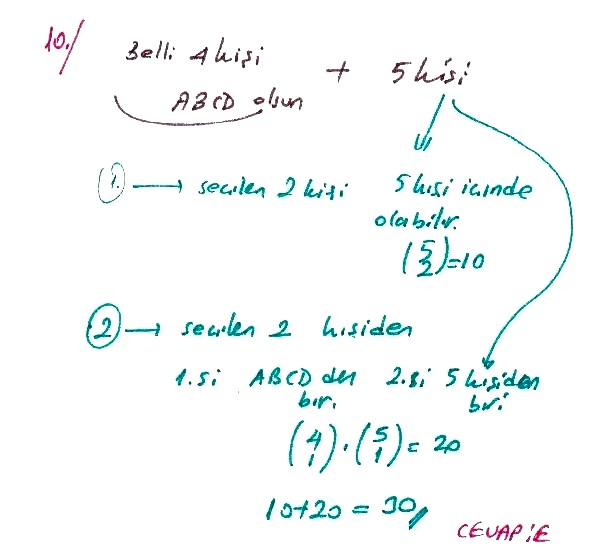 10./ Belli 4 kişi + 5 kişi
ABCD olsun
1. → seçilen 2 kişi 5 kişi içinde
olabilir.
(5 2)=10
2 → seçilen 2 kişiden
1.si ABCD den 2.si 5 kişiden
bir. biri
(4 1).(5 1)= 20
10+20 = 30//
CEVAP:E